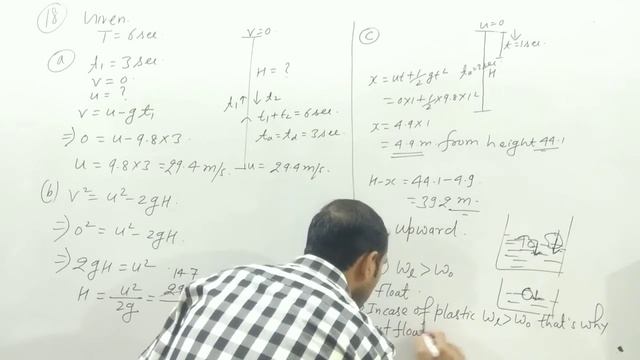 (18) Given.
T = 6 sec
(a) t₁ = 3 sec.
v = 0
u = ?
v = u - gt₁
⇒ 0 = u - 9.8 × 3
u = 9.8 × 3 = 29.4 m/s.
(b) v² = u² - 2gH
⇒ 0² = u² - 2gH.
⇒ 2gH = u²
14.7
H = u²/2g =
v = 0.
H = ?
t₁↑ ↓t₂
t₁ + t₂ = 6 sec.
tₐ = t_d = 3 sec.
u = 29.4 m/s.
(c)
u = 0
t = 1 sec.
H
x = ut + 1/2 gt²
= 0×1 + 1/2 × 9.8 × 1²
x = 4.9 × 1
= 4.9 m. from height 44.1
H - x = 44.1 - 4.9
= 39.2 m.
upward.
Wℓ > W₀
Float.
Incase of plastic Wℓ > W₀ that's why
float